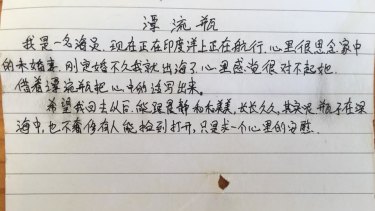 漂流瓶
我是一名海员,现在正在印度洋上正在航行,心里很思念家中
的未婚妻,刚完婚不久我就出海了心里感觉很对不起她.
借着漂流瓶把心中的话写出来。
希望我回去以后,能跟良静和和美美,长长久久,其实呢,瓶子在深
海中,也不奢侈有人能捡到打开,只是求一个心里的安慰